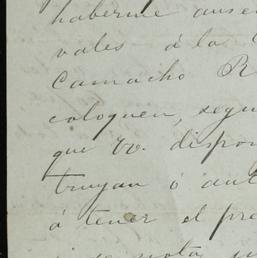 haberme ause
vales á la
Camacho R
coloquen, segu
que vv. dispon
truyan ó aut
á tener el pre
nota